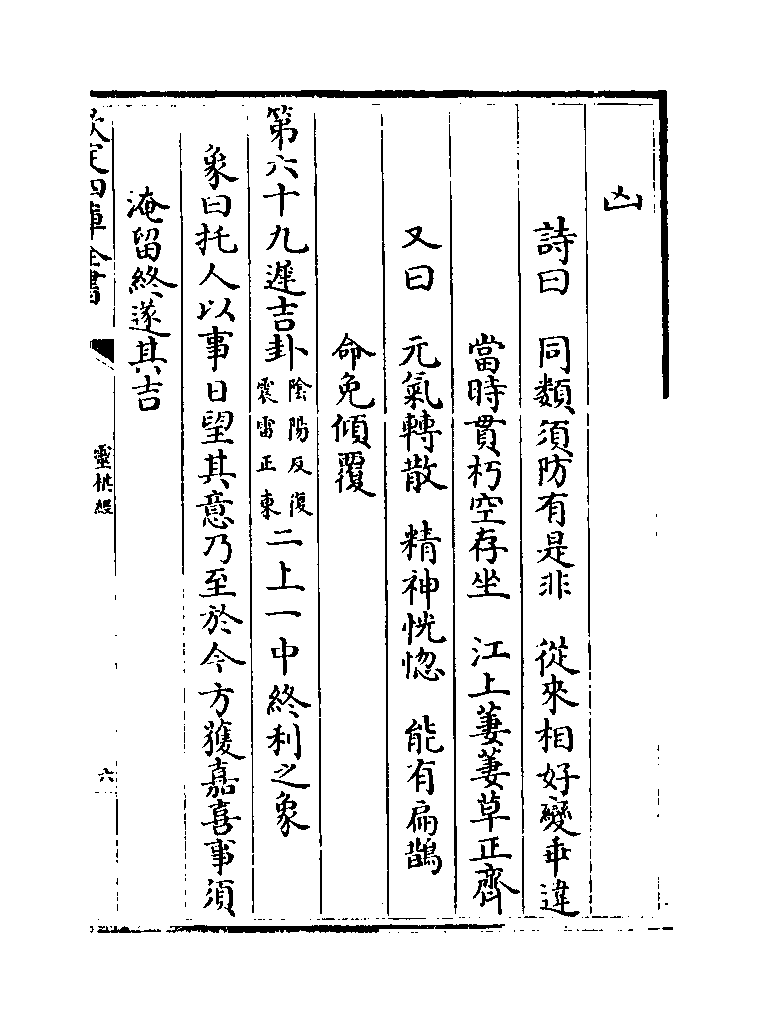 凶
詩曰　同類須防有是非　從來相好變乖違
當時貫朽空存坐　江上萋萋草正齊
又曰　元氣轉散　精神恍惚　能有扁鵲
命免傾覆
第六十九遲吉卦 陰陽反復 震雷正東 二上一中終利之象
象曰托人以事日望其意乃至於今方獲嘉喜事須
淹留終遂其吉
欽定四庫全書
靈棋經
六